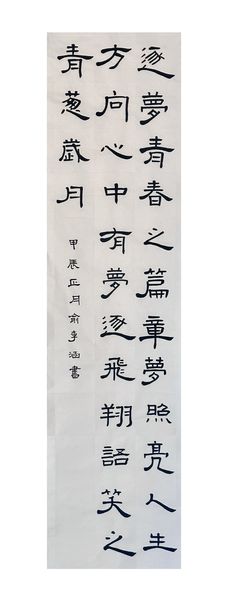 逐夢青春之篇章夢照亮人生
方向心中有夢逐飛翔語笑之
青蔥歲月
甲辰正月俞李涵書